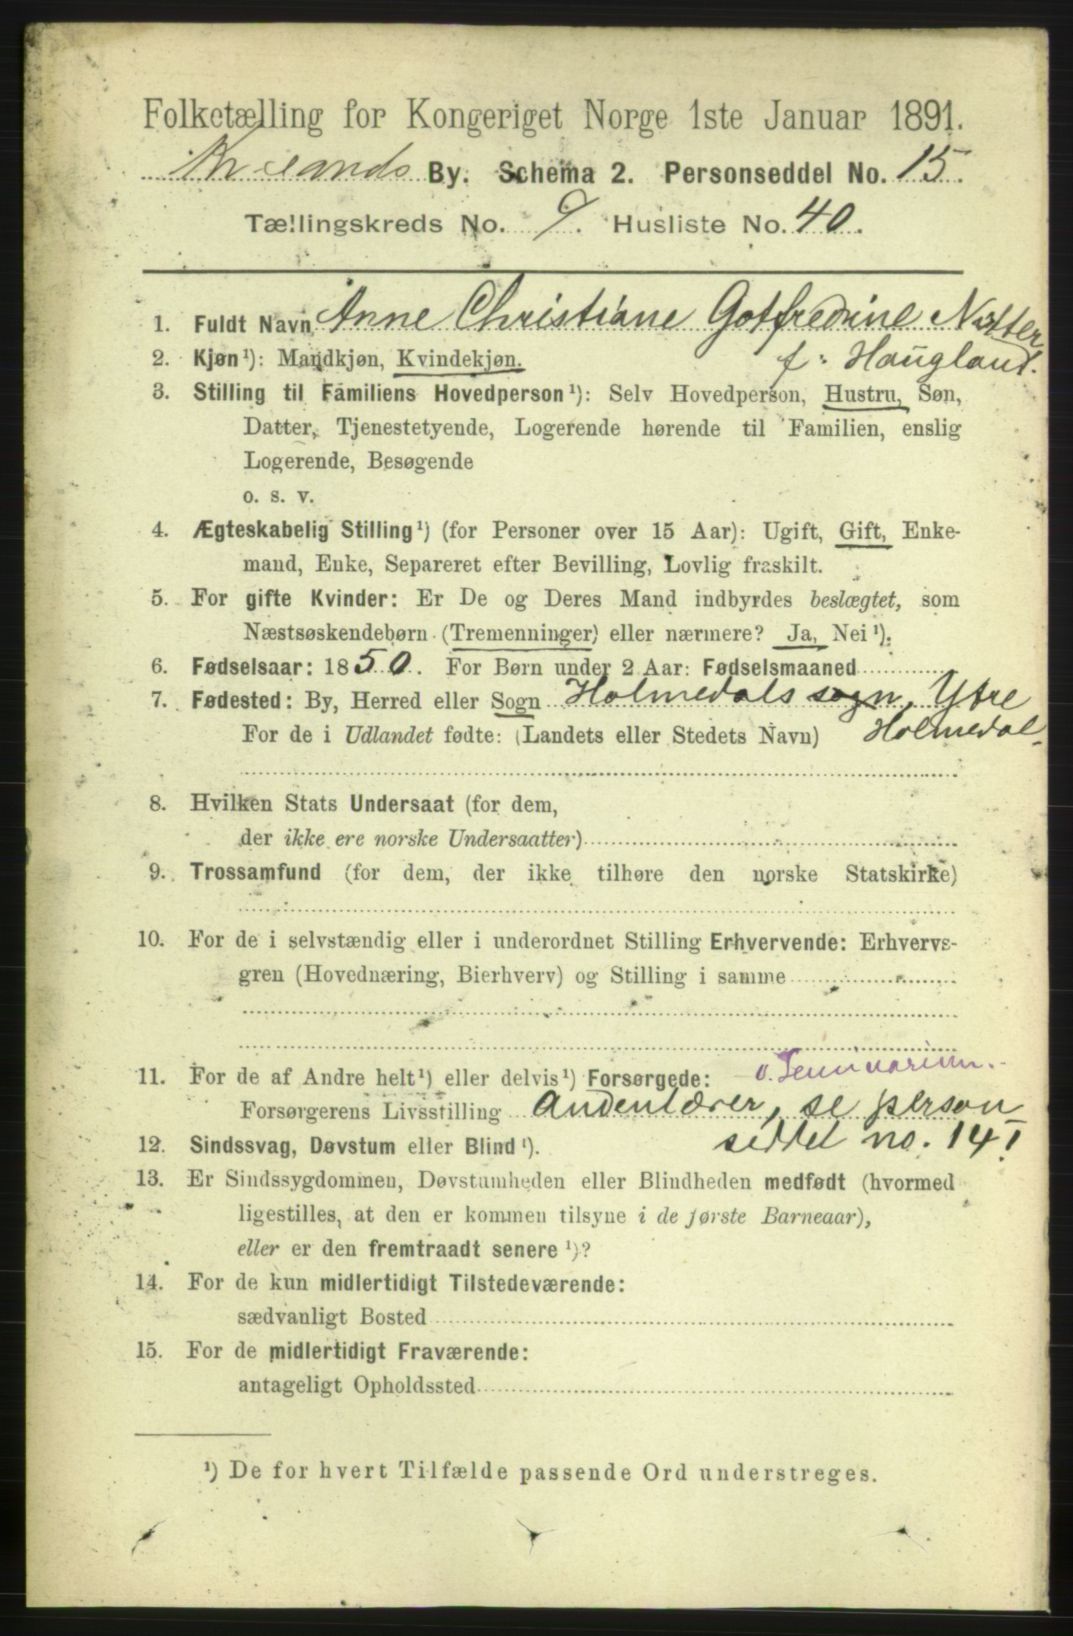 Folketælling for Kongeriget Norge 1ste Januar 1891.
Kr.sands By. Schema 2. Personseddel No. 15.
Tællingskreds No. 9. Husliste No. 40.
1. Fuldt Navn Anne Christiane Gotfredine Natter
f: Haugland.
2. Kjøn ¹): Mandkjøn, Kvindekjøn.
3. Stilling til Familiens Hovedperson ¹): Selv Hovedperson, Hustru, Søn,
Datter, Tjenestetyende, Logerende hørende til Familien, enslig
Logerende, Besøgende
o. s. v.
4. Ægteskabelig Stilling ¹) (for Personer over 15 Aar): Ugift, Gift, Enke-
mand, Enke, Separeret efter Bevilling, Lovlig fraskilt.
5. For gifte Kvinder: Er De og Deres Mand indbyrdes beslægtet, som
Næstsøskendebørn (Tremenninger) eller nærmere? Ja, Nei ¹).
6. Fødselsaar: 1850. For Børn under 2 Aar: Fødselsmaaned
7. Fødested: By, Herred eller Sogn Holmedals sogn, Ytre
For de i Udlandet fødte: (Landets eller Stedets Navn) Holmedal.
8. Hvilken Stats Undersaat (for dem,
der ikke ere norske Undersaatter)
9. Trossamfund (for dem, der ikke tilhøre den norske Statskirke)
10. For de i selvstændig eller i underordnet Stilling Erhvervende: Erhvervs-
gren (Hovednæring, Bierhverv) og Stilling i samme
11. For de af Andre helt ¹) eller delvis ¹) Forsørgede: v. Seminarium.
Forsørgerens Livsstilling Andenlærer, se person
seddel no. 14!
12. Sindssvag, Døvstum eller Blind ¹).
13. Er Sindssygdommen, Døvstumheden eller Blindheden medfødt (hvormed
ligestilles, at den er kommen tilsyne i de første Barneaar),
eller er den fremtraadt senere ¹)?
14. For de kun midlertidigt Tilstedeværende:
sædvanligt Bosted
15. For de midlertidigt Fraværende:
antageligt Opholdssted
¹) De for hvert Tilfælde passende Ord understreges.